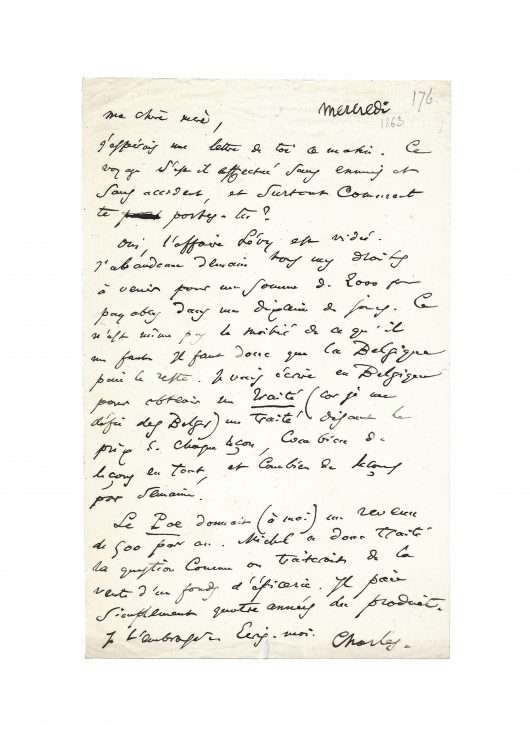 176
mercredi
1863
ma chère mère,
j'espérais une lettre de toi ce matin. Ce
voyage s'est il effectué sans ennui et
sans accident, et surtout Comment
te portes-tu?
Oui, l'affaire Lévy est vidée.
J'abandonne demain tous mes droits
à venir pour une somme de 2000 fr
payables dans une dizaine de jours. Ce
n'est même pas la moitié de ce qu'il
me faut. Il faut donc que la Belgique
paie le reste. Je vais écrire en Belgique
pour obtenir un traité (car je me
défie des Belges) un traité disant le
prix de chaque leçon, Combien de
leçons en tout, et Combien de leçons
par semaine.
Le Poe donnait (à moi) un revenu
de 500 par an. Michel a donc traité
la question Comme on traiterait de la
vente d'un fonds d'épicerie. Il paie
simplement quatre années du produit.
Je t'embrasse. Ecris-moi.
Charles.